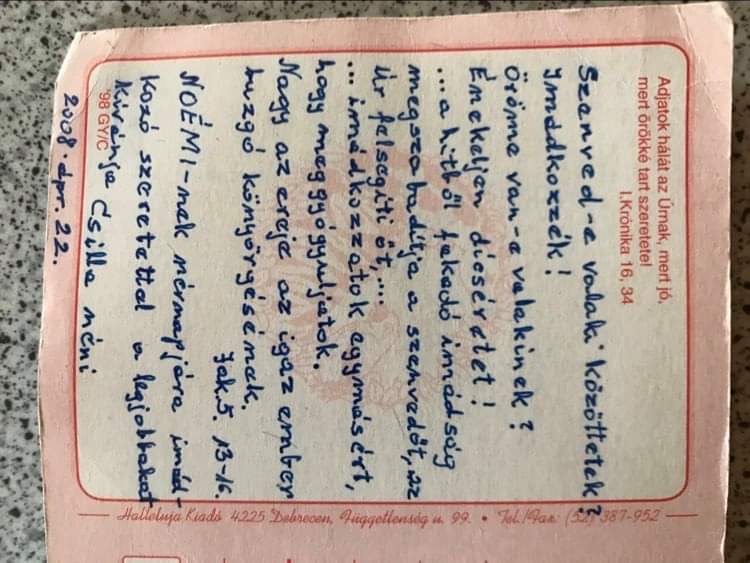 Adjatok hálát az Úrnak, mert jó,
mert örökké tart szeretete!
I.Krónika 16, 34
Szenved-e valaki közöttetek?
Imádkozzék!
Öröme van-e valakinek?
Énekeljen dicséretet!
...a hitből fakadó imádság
megszabadítja a szenvedőt, az
Úr felsegíti őt,...
... imádkozzatok egymásért,
hogy meggyógyuljatok.
Nagy az ereje az igaz ember
buzgó könyörgésének.
Jak.5. 13-16.
NOÉMI-nek névnapjára imád-
kozó szeretettel a legjobbakat
kívánja Csilla néni
'98 GY/C
2008. ápr. 22.
Halleluja Kiadó 4225 Debrecen, Függetlenség u. 99. • Tel./Fax: (52) 387-952